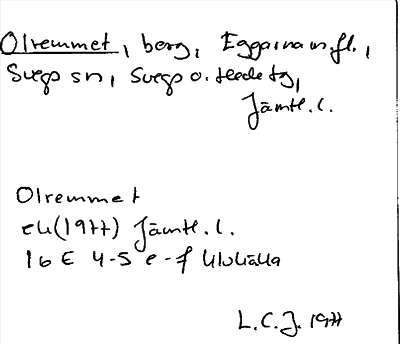 Olremmet, berg,
Svegs sn, Svegs o. Hede tg,
Jämtl. l.
Olremmet
ek (1977) Jämtl. l.
16 E 4-5 e-f Ulvkälla
L.C.J. 1977